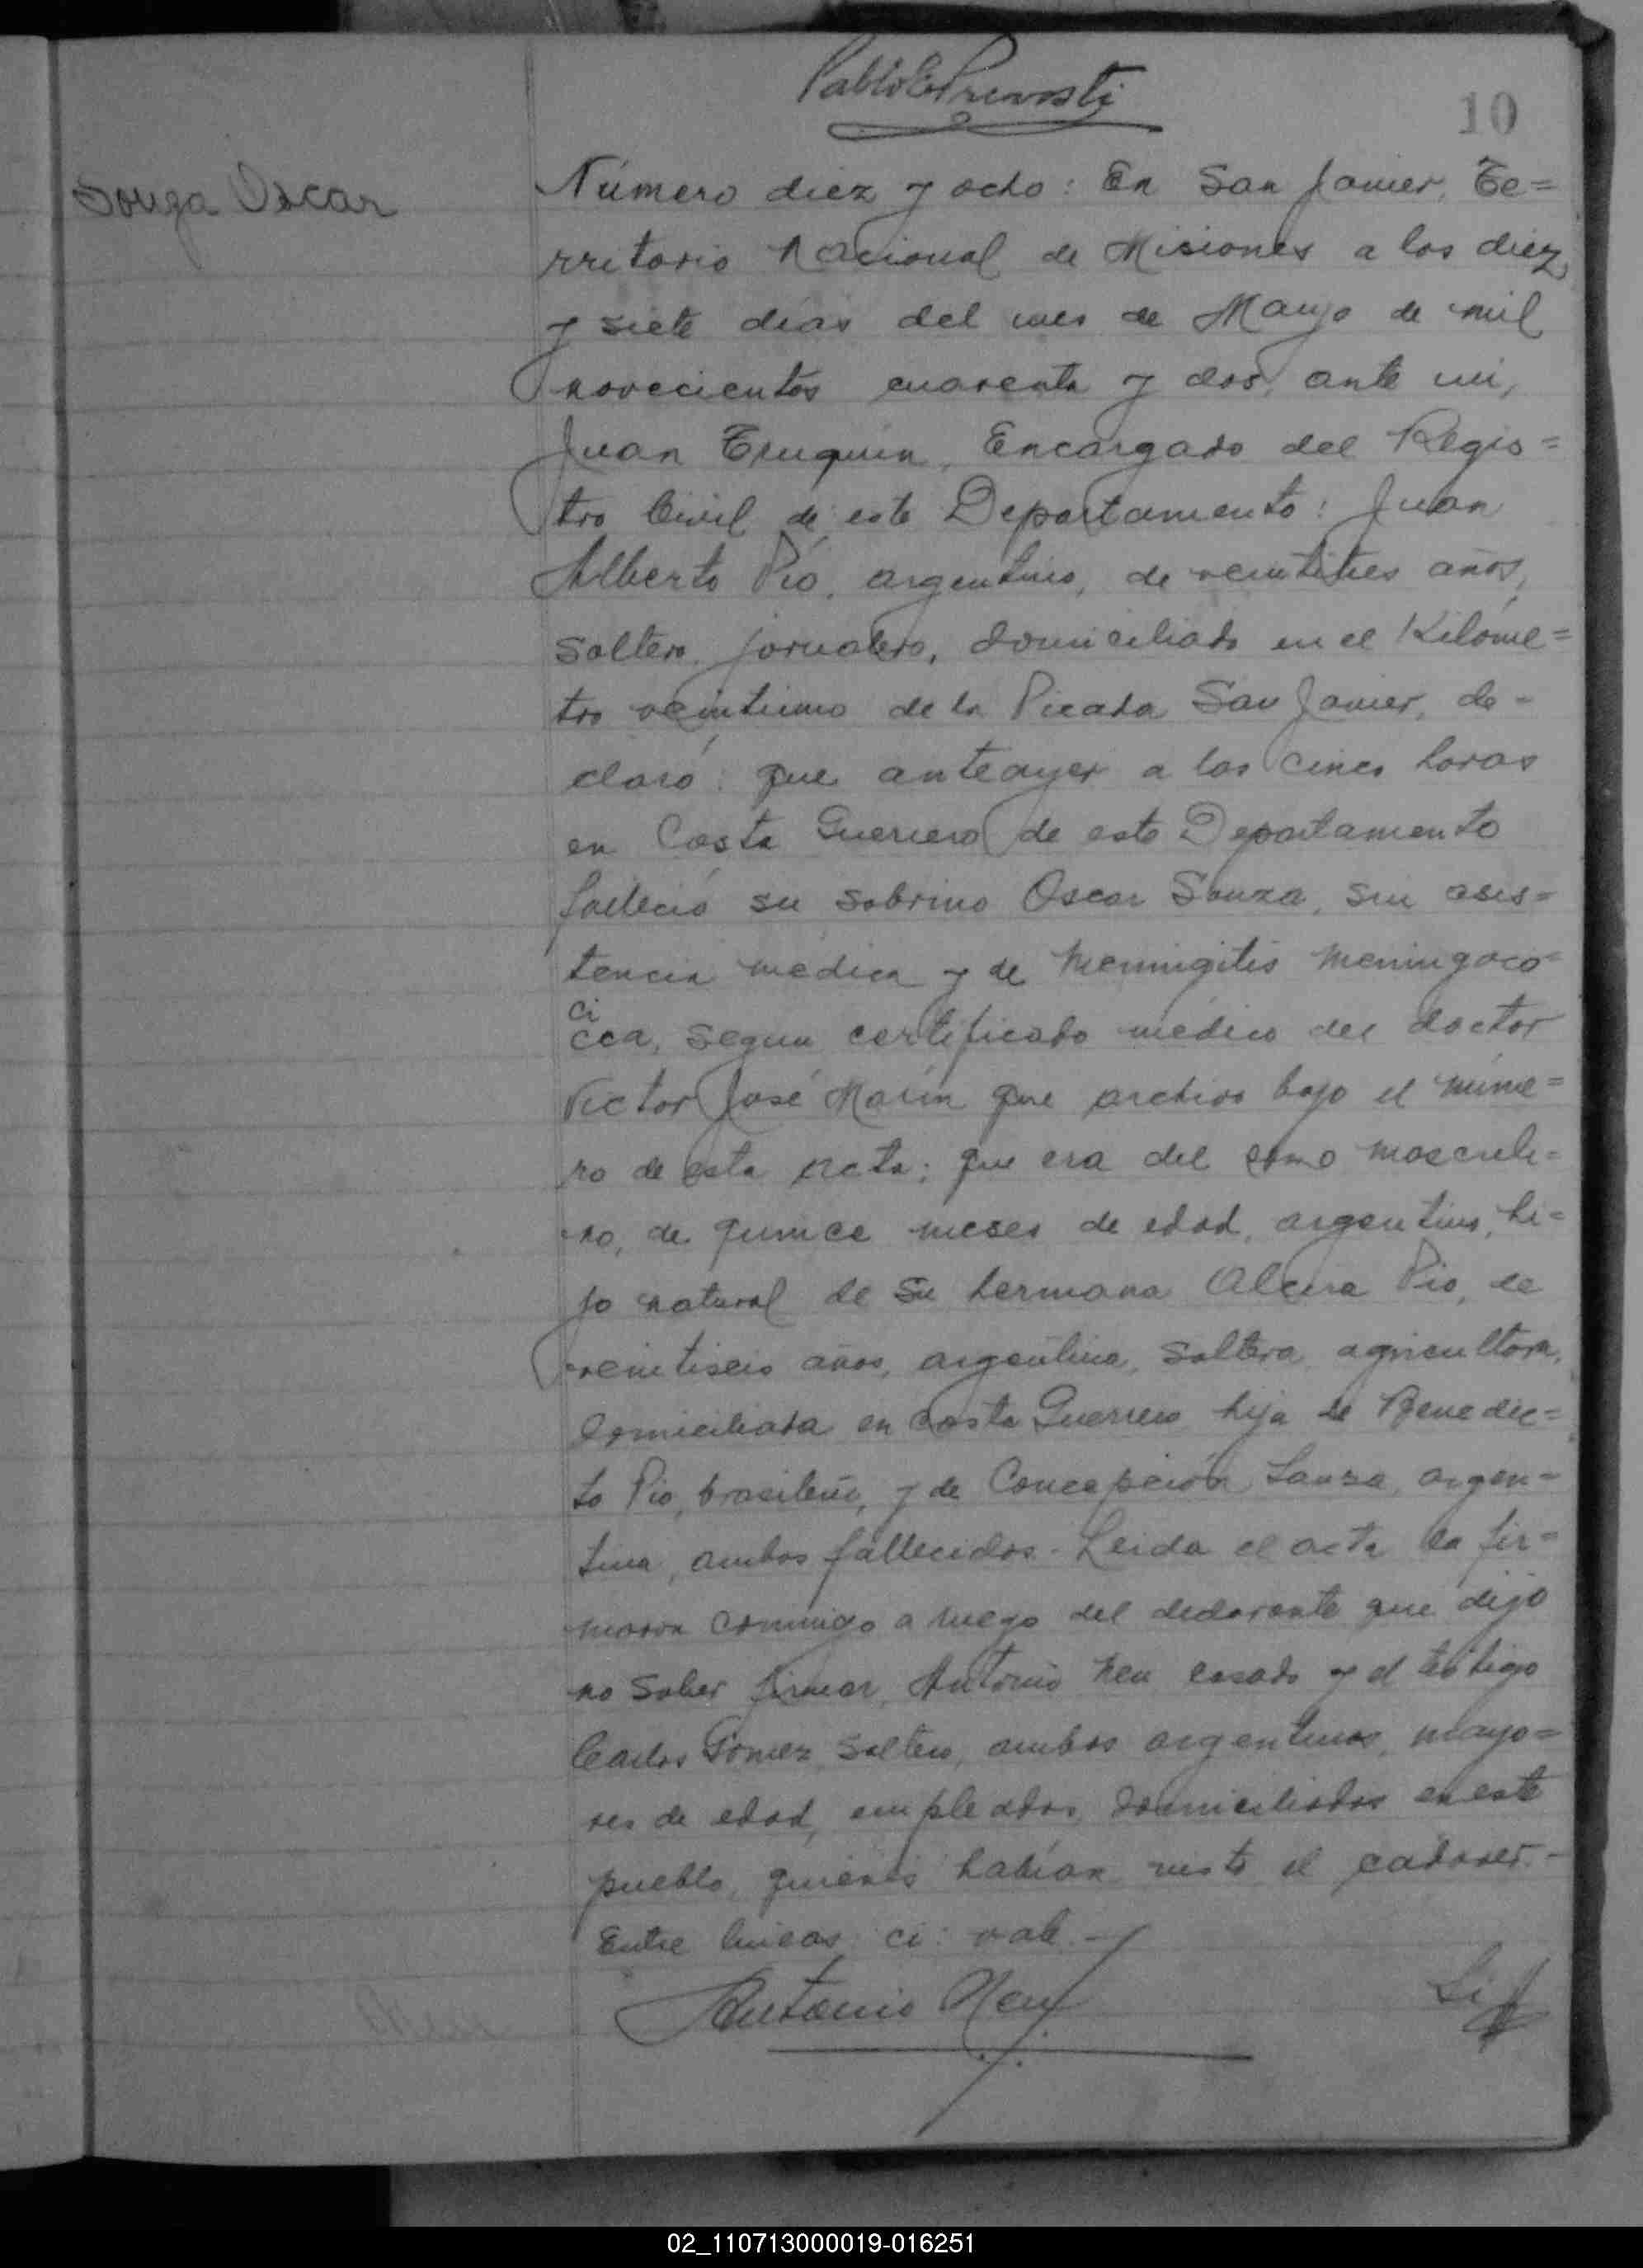 Pablo E Prevosti
10
Souza Oscar
Número diez y ocho: En San Javier, Te=
rritorio Nacional de Misiones a los diez
y siete días del mes de Mayo de mil
novecientos cuarenta y dos, ante mi,
Juan Truquin, Encargado del Regis=
tro Civil de este Departamento: Juan
Alberto Pió, argentino, de veintitres años,
soltero, jornalero, domiciliado en el Kilóme=
tro veintiuno de la Picada San Javier, de-
claró: que anteayer a las cinco horas
en Costa Guerrero de este Departamento
falleció su sobrino Oscar Souza, sin asis=
tencia médica y de Meningitis meningoco=
ci
cca, segun certificado médico del doctor
Victor José Marín que archivo bajo el núme=
ro de esta acta; que era del sexo masculi=
no, de quince meses de edad, argentino, hi=
jo natural de su hermana Alcira Pio, de
veintiseis años, argentina, soltera, agricultora,
domiciliada en Costa Guerrero hija de Benedic=
to Pio, brasileño, y de Concepción Souza, argen=
tina, ambos fallecidos. Leida el acta la fir=
maron conmigo a ruego del declarante que dijo
no saber firmar, Antonio Neu casado y el testigo
Carlos Gomez, soltero, ambos argentinos, mayo=
res de edad, empleados, domiciliados en este
pueblo, quienes habían visto el cadaver.-
Entre lineas: ci: vale.-
Antonio Neu
02_110713000019-016251